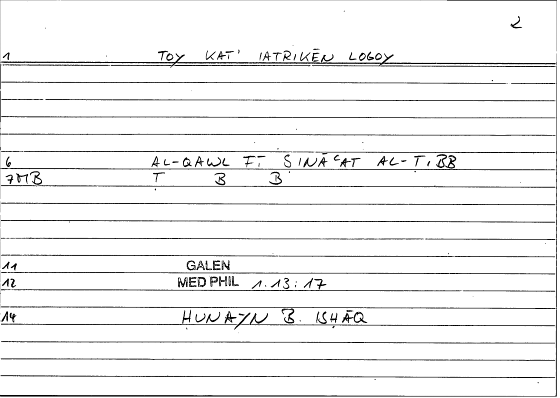 2
1 TOY KAT' IATRIKĒN LOGOY
6 AL-QAWL FĪ ṢINĀʿAT AL-ṬIBB
7MB T B B
11 GALEN
12 MED PHIL 1.13:17
14 ḤUNAYN B. ISḤĀQ